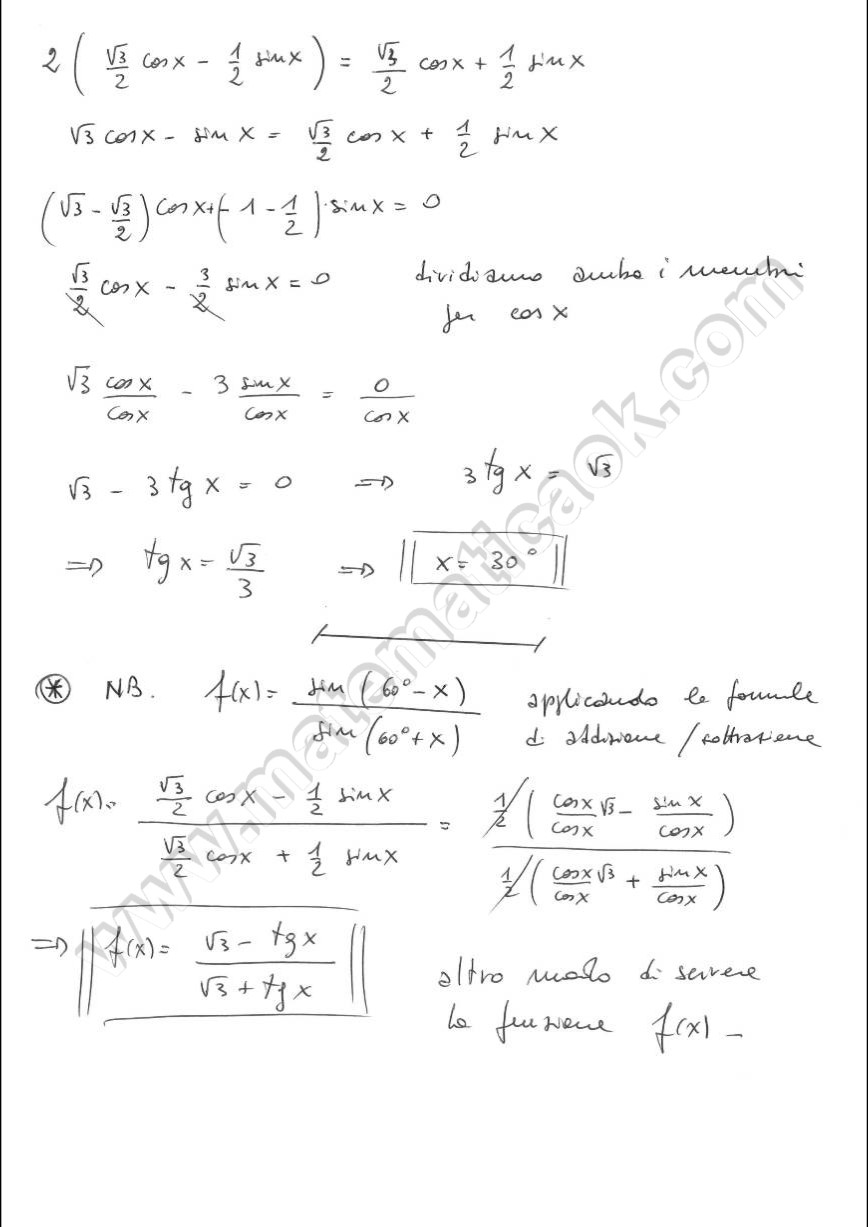 2 ( √3/2 cosx - 1/2 sinx ) = √3/2 cosx + 1/2 sinx
√3 cosx - sinx = √3/2 cosx + 1/2 sinx
(√3 - √3/2) cosx + (-1 - 1/2)·sinx = 0
√3/2 cosx - 3/2 sinx = 0 dividiamo ambo i membri
per cosx
√3 cosx/cosx - 3 sinx/cosx = 0/cosx
√3 - 3 tg x = 0 => 3 tg x = √3
=> tg x = √3/3 => x = 30°
(*) NB. f(x) = sin(60°-x)/sin(60°+x) applicando le formule
di addizione / sottrazione
f(x) = (√3/2 cosx - 1/2 sinx)/(√3/2 cosx + 1/2 sinx) = 1/2(cosx/cosx √3 - sinx/cosx)/1/2(cosx/cosx √3 + sinx/cosx)
=> f(x) = (√3 - tg x)/(√3 + tg x)
altro modo di scrivere
la funzione f(x) -
www.matematicaok.com